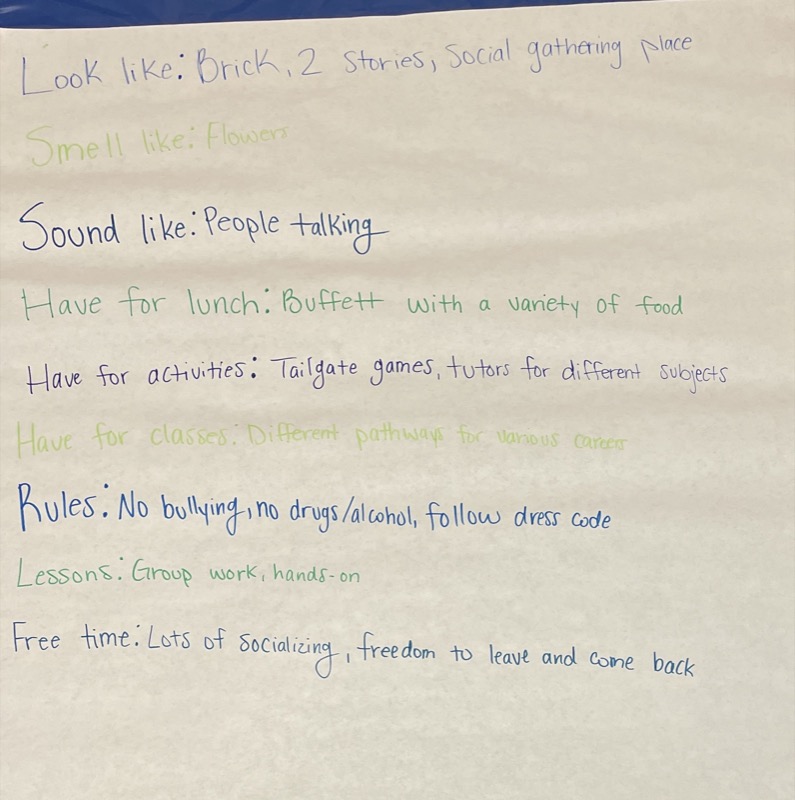 Look like: Brick, 2 stories, social gathering place
Smell like: Flowers
Sound like: People talking
Have for lunch: Buffett with a variety of food
Have for activities: Tailgate games, tutors for different subjects
Have for classes: Different pathways for various careers
Rules: No bullying, no drugs/alcohol, follow dress code
Lessons: Group work, hands-on
Free time: Lots of socializing, freedom to leave and come back